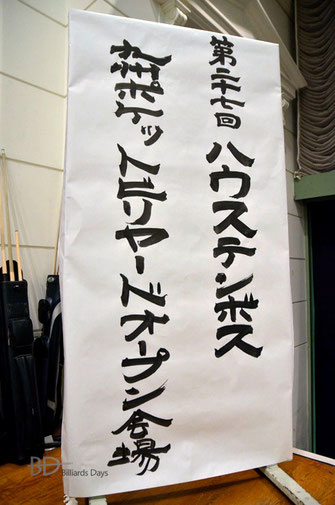 第二十七回 ハウステンボス
九州ポケットビリヤードオープン会場
BD
Billiards Days